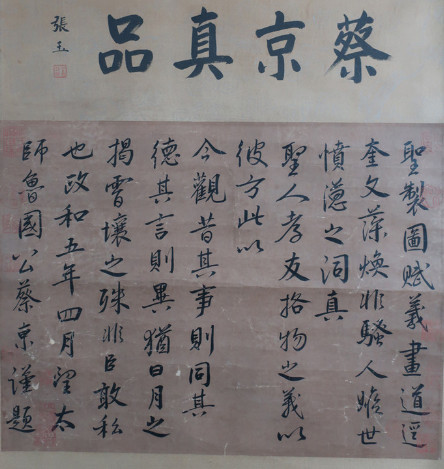 蔡京真品
張玉
聖製圖賦義畫道逕
奎文藻煥非騷人瞻世
憤懣之詞真
聖人孝友格物之義以
彼方此以
今觀昔其事則同其
德其言則異猶日月之
揭霄壤之殊非臣敢私
也政和五年四月望太
師魯國公蔡京謹題